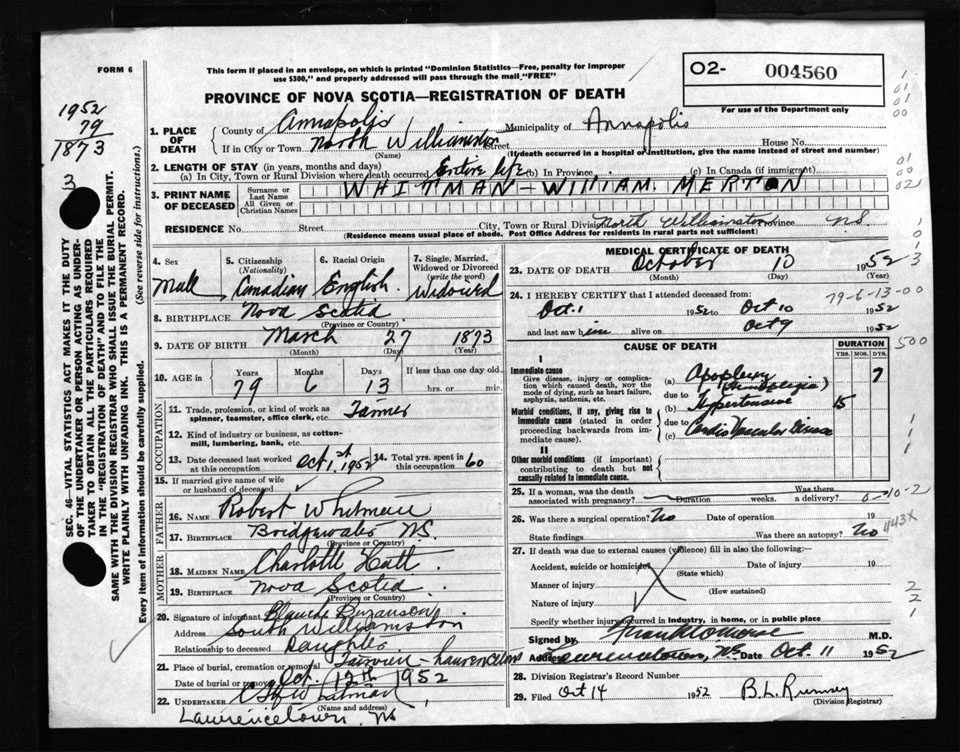 FORM 6
This form if placed in an envelope, on which is printed "Dominion Statistics—Free, penalty for improper
use $300," and properly addressed will pass through the mail "FREE"
PROVINCE OF NOVA SCOTIA—REGISTRATION OF DEATH
O2- 004560
For use of the Department only
1952
79
1873
3
1
01
01
00
01
00
02
1
0
1
3
SEC. 46—VITAL STATISTICS ACT MAKES IT THE DUTY
OF THE UNDERTAKER OR PERSON ACTING AS UNDER-
TAKER TO OBTAIN ALL THE PARTICULARS REQUIRED
IN THE "REGISTRATION OF DEATH" AND TO FILE THE
SAME WITH THE DIVISION REGISTRAR WHO SHALL ISSUE THE BURIAL PERMIT.
WRITE PLAINLY WITH UNFADING INK. THIS IS A PERMANENT RECORD.
Every item of information should be carefully supplied. (See reverse side for instructions.)
1. PLACE OF DEATH
County of Annapolis Municipality of Annapolis
If in City or Town North Williamston Street House No.
(Name) (If death occurred in a hospital or institution, give the name instead of street and number)
2. LENGTH OF STAY (in years, months and days)
(a) In City, Town or Rural Division where death occurred Entire life (b) In Province (c) In Canada (if immigrant)
3. PRINT NAME OF DECEASED
Surname or Last Name WHITMAN - WILLIAM MERTON
All Given or Christian Names
RESIDENCE No. Street City, Town or Rural Division North Williamston Province N.S.
(Residence means usual place of abode. Post Office Address for residents in rural parts not sufficient)
4. Sex Male
5. Citizenship (Nationality) Canadian
6. Racial Origin English
7. Single, Married, Widowed or Divorced (write the word) Widowed
8. BIRTHPLACE Nova Scotia
(Province or Country)
9. DATE OF BIRTH March 27 1873
(Month) (Day) (Year)
10. AGE in Years Months Days If less than one day old
79 6 13 hrs. or min.
OCCUPATION
11. Trade, profession, or kind of work as spinner, teamster, office clerk, etc. Farmer
12. Kind of industry or business, as cotton-mill, lumbering, bank, etc.
13. Date deceased last worked at this occupation Oct 1st, 1952 14. Total yrs. spent in this occupation 60
15. If married give name of wife or husband of deceased
FATHER
16. NAME Robert Whitman
17. BIRTHPLACE Bridgewater N.S.
(Province or Country)
MOTHER
18. MAIDEN NAME Charlotte Hatt
19. BIRTHPLACE Nova Scotia
(Province or Country)
20. Signature of informant Blanche Duranson
Address South Williamston
Relationship to deceased Daughter
21. Place of burial, cremation or removal Fairview - Lawrencetown
Date of burial or removal Oct. 12th 1952
22. UNDERTAKER Whitman
(Name and address)
Lawrencetown. NS
MEDICAL CERTIFICATE OF DEATH
23. DATE OF DEATH October 10 1952
(Month) (Day) (Year)
24. I HEREBY CERTIFY that I attended deceased from: 79-6-13-00
Oct. 1 1952 to Oct 10 1952
and last saw him alive on Oct 9 1952
CAUSE OF DEATH DURATION
YRS. MOS. DYS.
500
I
Immediate cause
Give disease, injury or complication which caused death, NOT the mode of dying, such as heart failure, asphyxia, asthenia, etc.
(a) Apoplexy 7
due to
(b) Hypertensive 15
Morbid conditions, if any, giving rise to immediate cause (stated in order proceeding backwards from immediate cause).
due to
(c) Cardio Vascular Disease
1
1
1
II
Other morbid conditions (if important) contributing to death but not causally related to immediate cause.
25. If a woman, was the death associated with pregnancy? Duration weeks. Was there a delivery? 0-10-2
26. Was there a surgical operation? No Date of operation 19
443X
State findings Was there an autopsy? No
27. If death was due to external causes (violence) fill in also the following:—
Accident, suicide or homicide? Date of injury 19
(State which)
Manner of injury
(How sustained)
Nature of injury
2
2
1
Specify whether injury occurred in industry, in home, or in public place
Signed by Frank Morse M.D.
Address Lawrencetown, N.S. Date Oct. 11 1952
28. Division Registrar's Record Number
29. Filed Oct 14 1952 B.L. Rumsey
(Division Registrar)